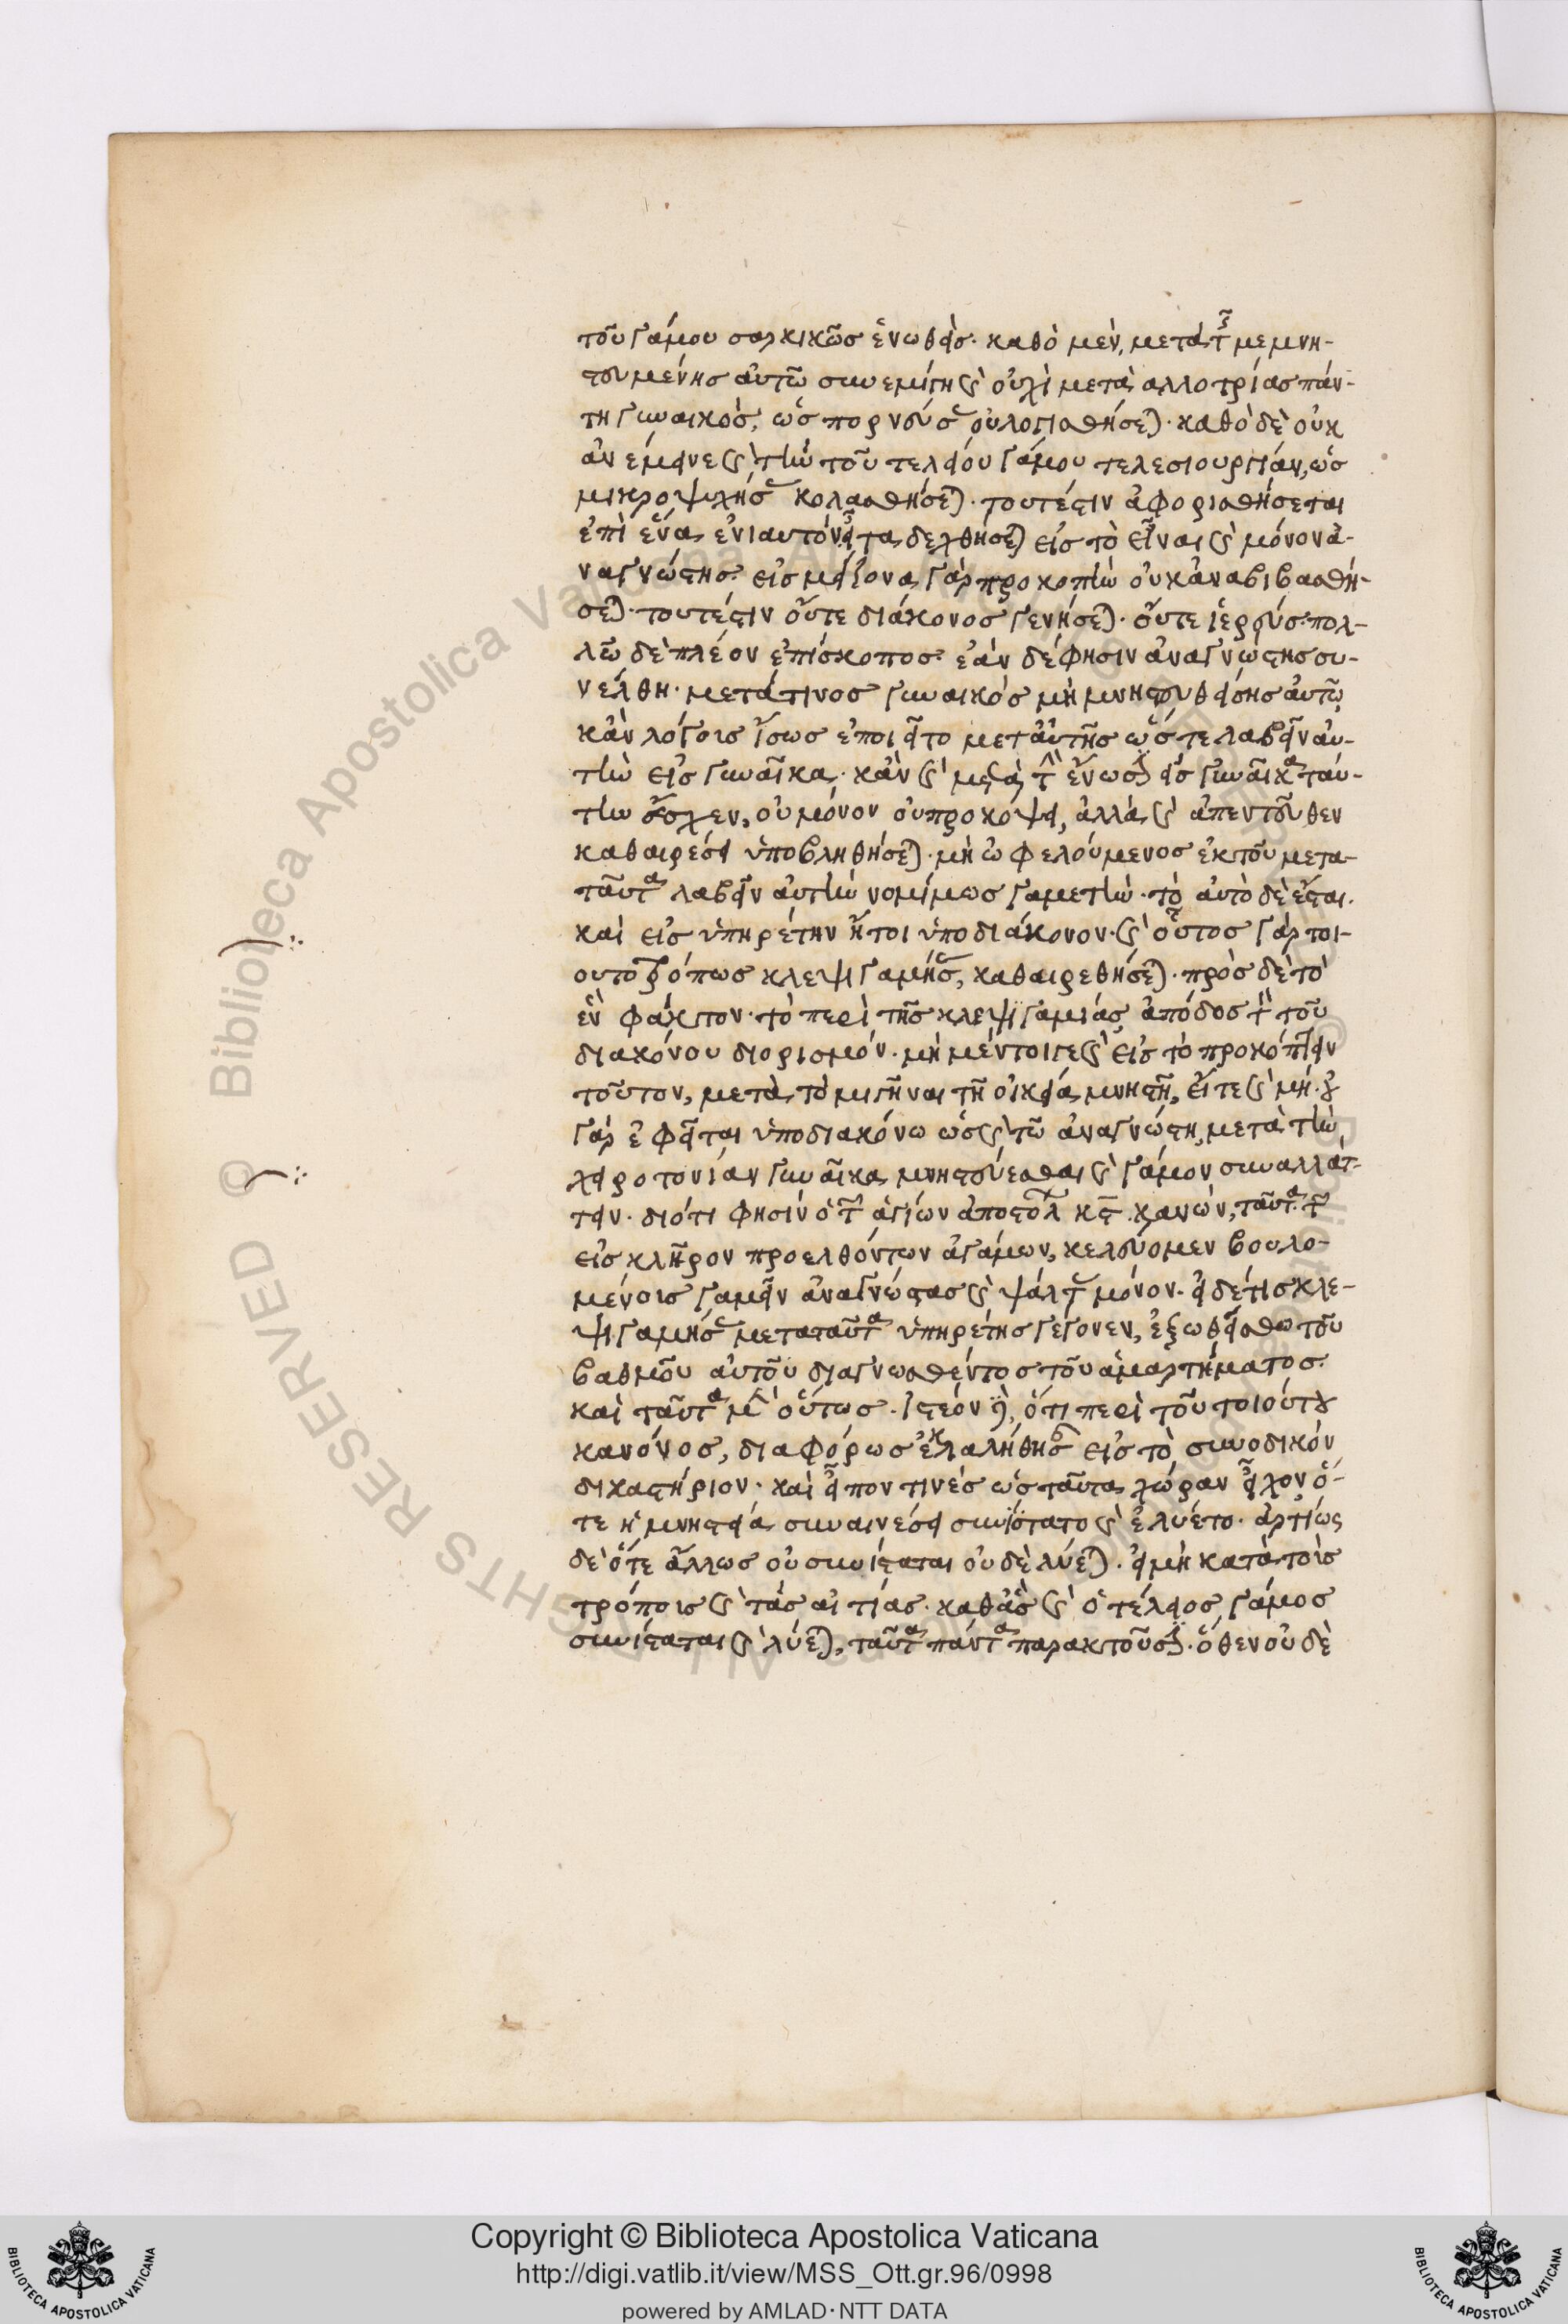 τοῦ γάμου σαρκικῶς ἑνωθείς· καθὸ μὲν, μετὰ τῆς μεμνη-
στευμένης αὐτῶ συνεμίγη καὶ οὐχὶ μετὰ αλλοτρίας πάν-
τη γυναικὸς, ὡς πορνεύσας εὐλογισθήσεται· καθὸ δὲ οὐκ
ἀνέμεινε καὶ τὴν τοῦ τελείου γάμου τελεσιουργίαν, ὡς
μικροψυχήσας κολασθήσεται· τουτέστιν ἀφορισθήσεται
ἐπὶ ἕνα ἐνιαυτόν εἶτα δεχθήσεται εἰς τὸ εἶναι καὶ μόνον ἀ-
ναγνώστης· εἰς μείζονα γὰρ προκοπὴν οὐκ ἀναβιβασθή-
σεται· τουτέστιν οὔτε διάκονος γενήσεται· οὔτε ἱερεύς· πολ-
λῶ δὲ πλέον ἐπίσκοπος· ἐὰν δέ φησιν ἀναγνώστης συ-
νέλθη· μετά τινος γυναικός μὴ μνηστευθείσης αὐτῶ,
κἂν λόγοις ἴσως ἐποιεῖτο μετ' αὐτῆς ὥστε λαβεῖν αὐ-
τὴν εἰς γυναῖκα· κἂν καὶ μετὰ τὴν ἕνωσιν εἰς γυναῖκα ταύ-
την ἔσχεν, οὐ μόνον οὐ προκόψει, ἀλλὰ καὶ ἀπεντεῦθεν
καθαιρέσει ὑποβληθήσεται· μὴ ὠφελούμενος ἐκ τοῦ μετα-
ταῦτα λαβεῖν αὐτὴν νομίμως γαμετὴν· τὸ αὐτὸ δὲ ἔσται·
καὶ εἰς ὑπηρέτην ἤτοι ὑποδιάκονον· καὶ οὗτος γὰρ τοι-
ουτοτρόπως κλεψιγαμήσας, καθαιρεθήσεται· πρὸς δὲ τὸ
διακόνου διορισμόν· μὴ μέντοιγε καὶ εἰς τὸ προκόπτειν
τοῦτον, μετὰ τὸ μιγῆναι τῆ οἰκεία μνηστῆ, εἴτε καὶ μή· οὐ
γὰρ ἐφεῖται ὑποδιακόνω ὡς καὶ τῶ ἀναγνώστη, μετὰ τὴν
χειροτονίαν γυναῖκα μνηστεύεσθαι καὶ γάμον συναλλάτ-
τειν· διότι φησὶν ὁ τῶν ἁγίων ἀποστόλων κϛ κανὼν, ταῦτα· τῶν
εἰς κλῆρον προελθόντων ἀγάμων, κελεύομεν βουλο-
μένοις γαμεῖν ἀναγνώστας καὶ ψάλτας μόνον· εἰ δέ τις κλε-
ψιγαμήσας μεταταῦτα ὑπηρέτης γέγονεν, ἐξωθείσθω τοῦ
βαθμοῦ αὐτοῦ διαγνωσθέντος τοῦ ἁμαρτήματος·
καὶ ταῦτα μὲν οὕτως· ἰστέον δὲ, ὅτι περὶ τοῦ τοιούτου
κανόνος, διαφόρως ἐκλαλήθησαν εἰς τὸ συνοδικόν
δικαστήριον· καὶ εἶπον τινές ὡς ταῦτα χώραν εἶχον ὅ-
τε ἡ μνηστεία συναινέσει συνίστατο καὶ ἐλύετο· ἀρτίως
δὲ ὅτε ἄλλως οὐ συνίσταται οὐδὲ λύεται· εἰ μὴ κατὰ τοὺς
τρόποις καὶ τὰς αἰτίας· καθ' ἃς καὶ ὁ τέλειος γάμος
συνίσταται καὶ λύεται, ταῦτα πάντα παρακτοῦσιν· ὅθεν οὐδὲ
Copyright © Biblioteca Apostolica Vaticana
http://digi.vatlib.it/view/MSS_Ott.gr.96/0998
powered by AMLAD·NTT DATA